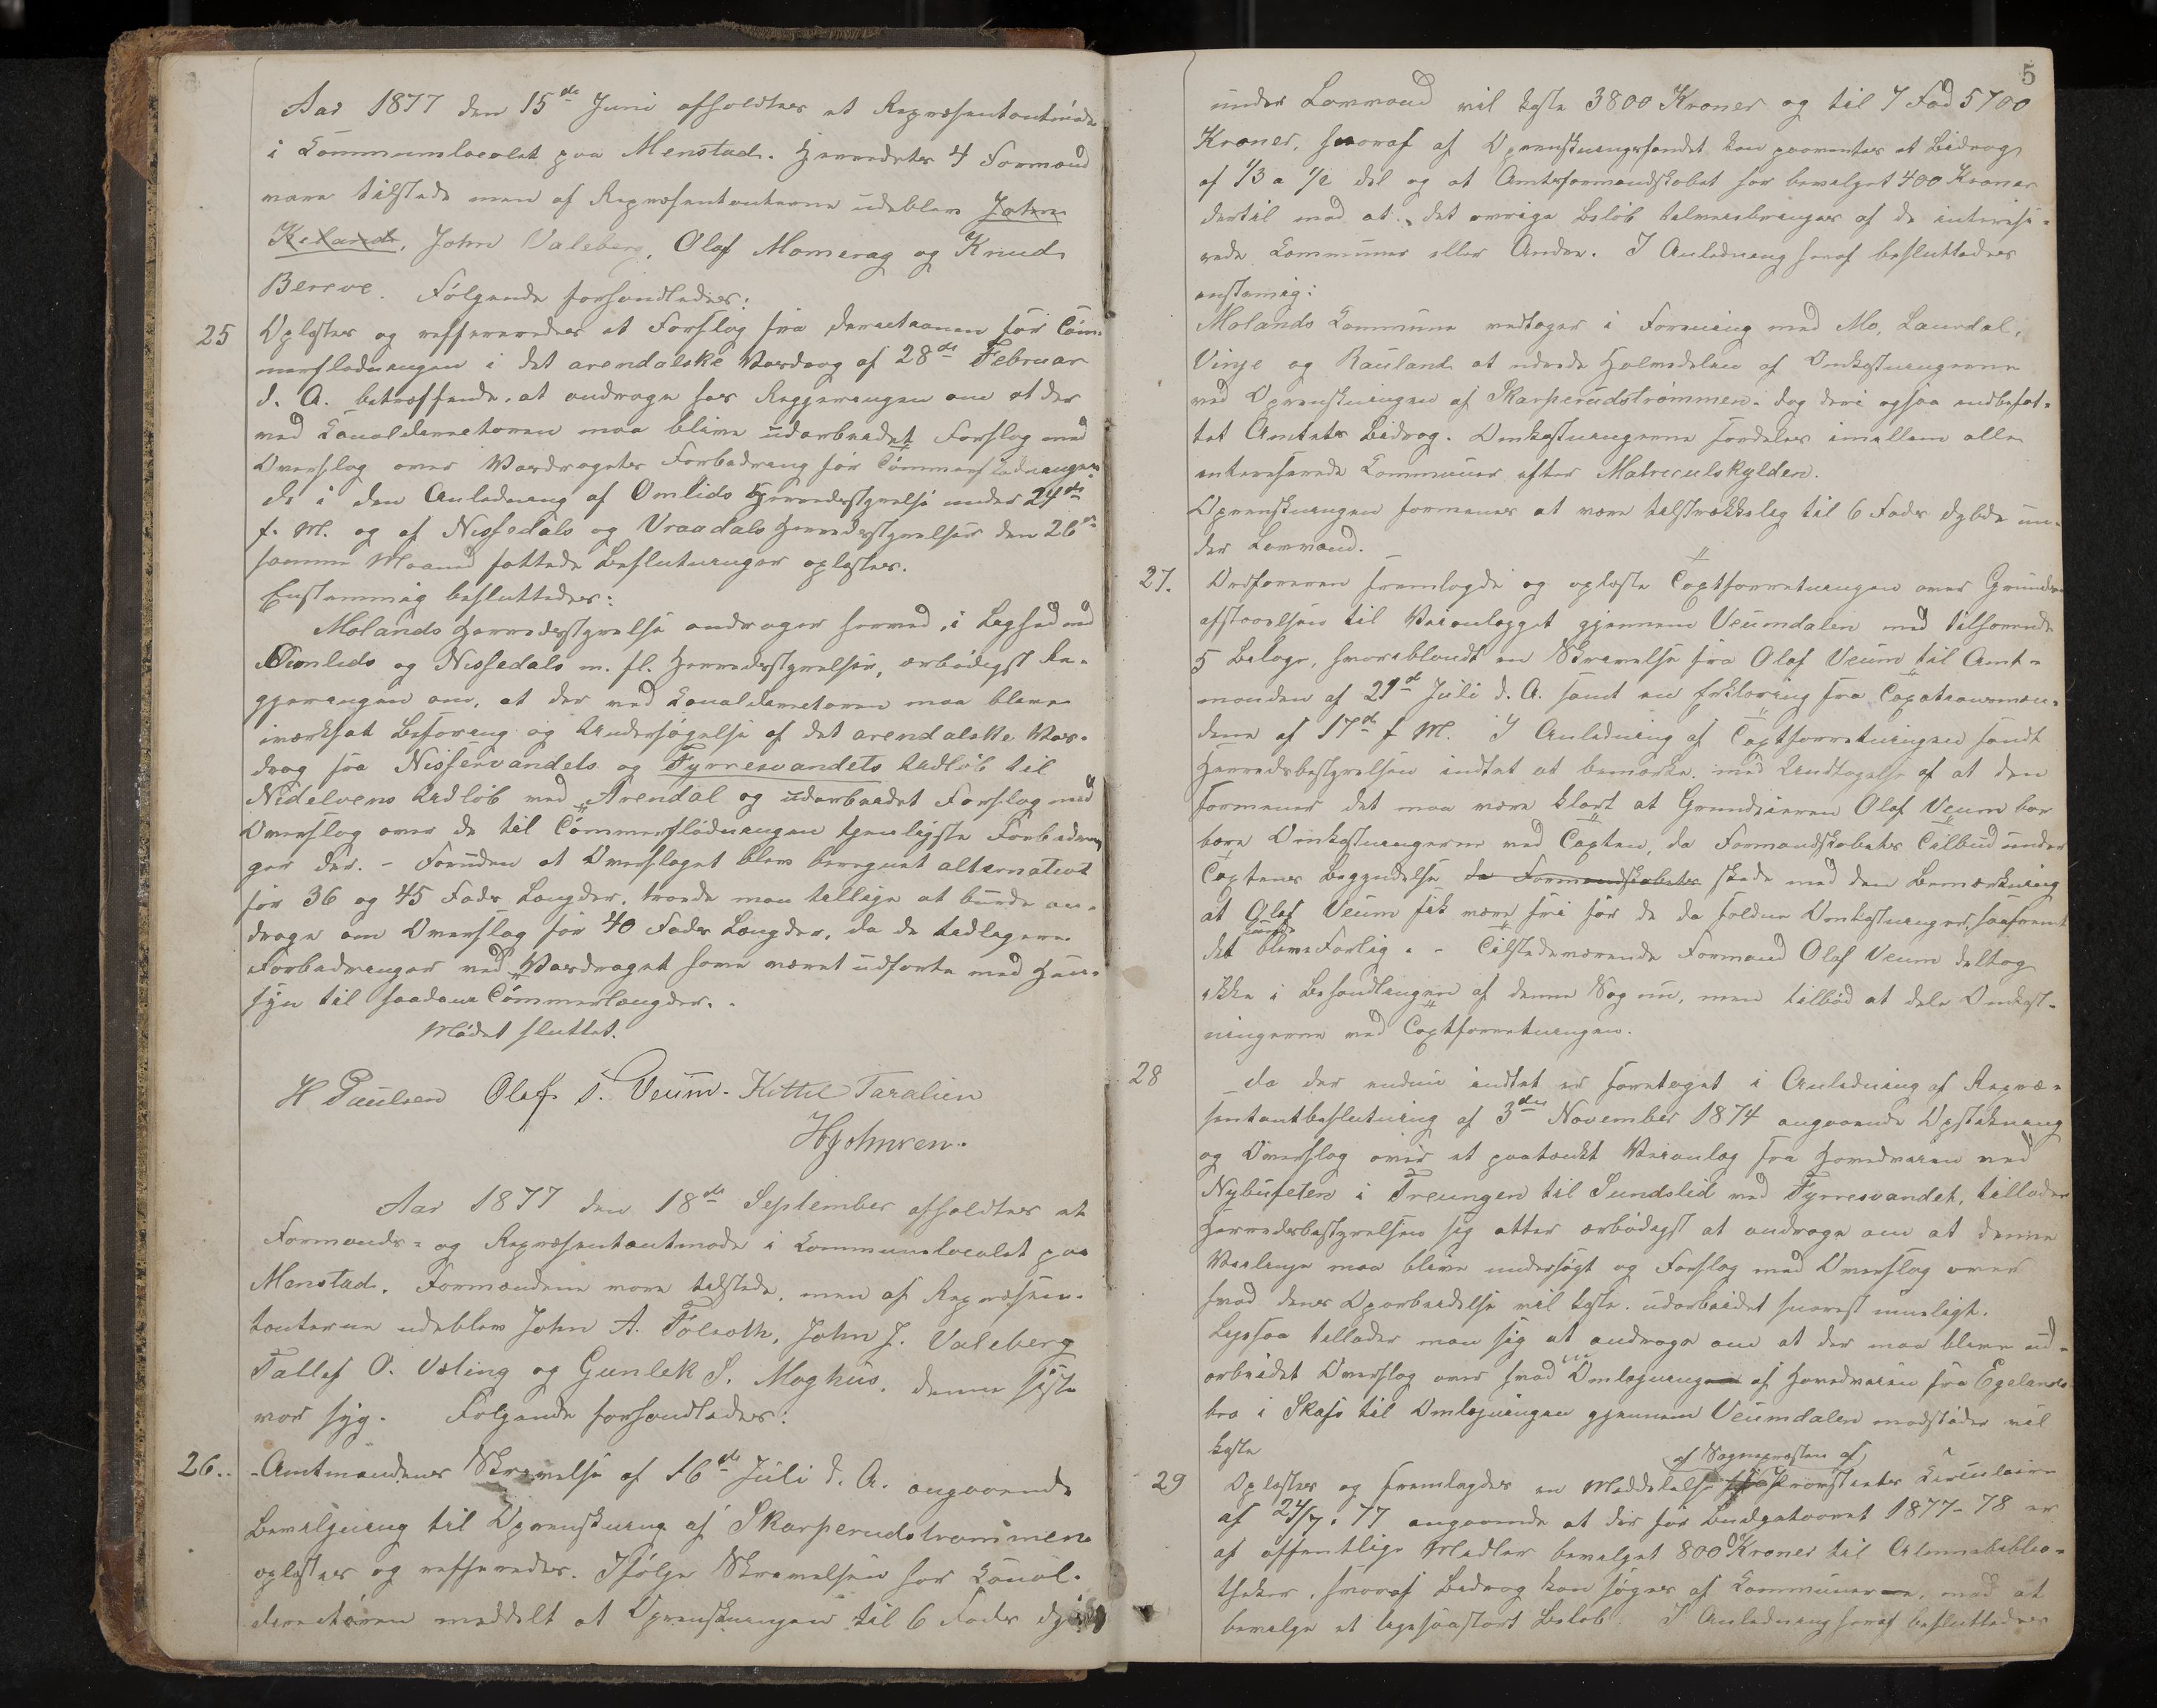 Aar 1877 den 15de Juni afholdtes et Repræsentantmöde
i Communelocalet paa Menstad. Herredets 4 Formænd
vare tilstede men af Repræsentanterne udeblev John
Kiland, John Valeberg, Olaf Momrag og Knud
Bereve. Fölgende forhandledes:
25 Oplæstes og reffereredes et Forslag fra Directionen för Töm-
merflödningen i det arendalske Vasdrag af 28de Februar
d. A. betræffende, at andrage hos Regjeringen om at der
ved Canaldirectoren maa blive udarbeidet Forslag med
Overslag over Vasdragets Forbedring för Tömmerflödningen
De i den Anledning af Omlids Herredsstyrelse under 24de
f. M. og af Nissedals og Vraadals Herredsstyrelser den 26de
samme Maaned fattede Beslutninger oplæstes.
Enstemmig besluttedes:
Molands Herredsstyrelse andrager herved, i Lighed med
Omlids og Nissedals m. fl. Herredsstyrelser, ærbödigst Re-
gjeringen om, at der ved Canaldirectoren maa blive
iværksat Befaring og Undersögelse af det arendalske Vas-
drag fra Nisservandets og Fyrresvandets Udlöb til
Nidelvens Udlöb ved Arendal og udarbeidet Forslag med
Overslag over de til Tömmerflödningen tjenligste Forbedrin
ger der. - Foruden at Overslaget blev beregnet alternativt
for 36 og 45 Fods Længder, troede man tillige at burde an-
drage om Overslag för 40 Fods Længder, da de tidligere
Forbedringer ved Vasdraget have været udförte med Hen-
syn til saadane Tömmerlængder.
Mödet sluttet.
H Paulsen Olaf S. Veum. Kittil Taralien
H Johnsen.
Aar 1877 den 18de September afholdtes et
Formands- og Repræsentantmöde i Communelocalet paa
Menstad. Formændene vare tilstede, men af Repræsen-
tanterne udeblev John A. Folsoth, John J. Valeberg
Tallef O. Væting og Gunlek S. Moghus, denne siste
var syg. Folgende forhandledes:
26. Amtmandens Skrivelse af 16de Juli d. A. angaaende
Bevilgning til Oprenskning af Skarperudströmmen
oplæstes og reffereredes. Ifölge Skrivelsen har Canal-
directören meddelt at Oprenskningen til 6 Fods
5
under Lavvand vil koste 3800 Kroner og til 7 Fod 5700
Kroner, hvoraf af Oprenskningsfondet kan paaventes et Bidrag
af 1/3 a 1/2 Del og at Amtsformandskabet har bevilget 400 Kroner
dertil mod at det övrige Belöb tilveiebringes af de interesse-
rede Communer eller Andre. I Anledning heraf besluttedes
enstemig:
Molands Commune vedtager i Forening med Mo, Laurdal,
Vinje og Rauland at udrede Halvdelen af Omkostningerne
ved Oprenskningen af Skarperudströmmen, dog deri ogsaa indbefat-
tet Amtets Bidrag. Omkostningerne fordeles imellem alle
interesserede Communer efter Matriculskylden.
Oprenskningen formenes at være tilstrækkelig til 6 Fods Dybde un-
der Lavvand.
27. Ordföreren fremlagde og oplæste Taxtforretningen over Grund-
afstaaelsen til Veianlægget gjennem Veumdalen med tilhörende
5 Bilage, hvoriblandt en Skrivelse fra Olaf Veum til Amt-
manden af 21de Juli d. A. samt en Erklæring fra Taxationsmæn-
dene af 17de f. M. I Anledning af Taxtforretningen fandt
Herredsbestyrelsen intet at bemærke, med Undtagelse af at den
formener det maa være klart at Grundeieren Olaf Veum bör
bære Omkostningerne ved Taxten, da Formandskabets Tilbud under
Taxtens Begyndelse da Formandskabets skede med den Bemærkning
at Olaf Veum fik være fri för de da foldne Omkostninger, saafremt
det blev Forlig. - Tilstedeværende Formand Olaf Veum deltog
ikke i Behandlingen af denne Sag nu, men tilböd at dele Omkost-
ningerne ved Taxtforretningen.
28 Da der endnu indtet er foretaget i Anledning af Repræ-
sentantbeslutning af 3die November 1874 angaaende Opstikning
og Overslag over et paatænkt Veianlæg fra Hovedveien ved
Nybufeten i Treungen til Sundslid ved Fyrresvandet, tillader
Herredsbestyrelsen sig atter ærbödigst at andrage om at denne
Veilinje maa blive undersögt og Forslag med Overslag over
hvad denes Oparbeidelse vil koste, udarbeidet snarest mueligt.
Ligesaa tillader man sig at andrage om at der maa blive ud-
arbeidet Overslag over hvad Omlægningen af Hovedveien fra Egelands-
bro i Skafse til Omlægningen gjennem Veumdalen vil
koste
29 Oplæstes og fremlagdes en Meddelelse af Sognepræsten af Circulaire
af 24/7. 77 angaaende at der för Budgetaaret 1877-78 er
af offentlige Midler bevilget 8000 Kroner til Almuebiblio-
theker, hvoraf Bidrag kan söges af Communerne, mod at
bevilge et ligesaastort Belöb. I Anledning heraf besluttedes